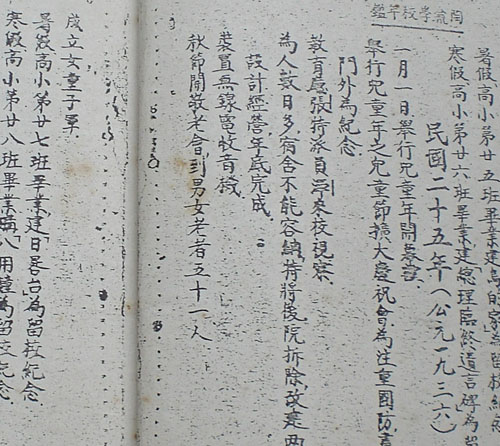 陶流学校年鑑
暑假高小第廿五班畢業建
寒假高小第廿六班畢業建「總理臨終遺言碑」為留
民國二十五年（公元一九三六）
一月一日舉行兒童年開幕
舉行兒童年之兒童節擴大慶祝會為注重國防
門外為紀念
教育廳張特派員崇來校視察
為人數日多宿舍不能容納特將後院拆除改蓋兩
設計經營年底完成
裝置無線電收音機
秋節開敬老會到男女老者五十一人
成立女童子軍
暑假高小第廿七班畢業建「日晷台」為留校紀念
寒假高小第廿八班畢業購八用鐘為留校紀念